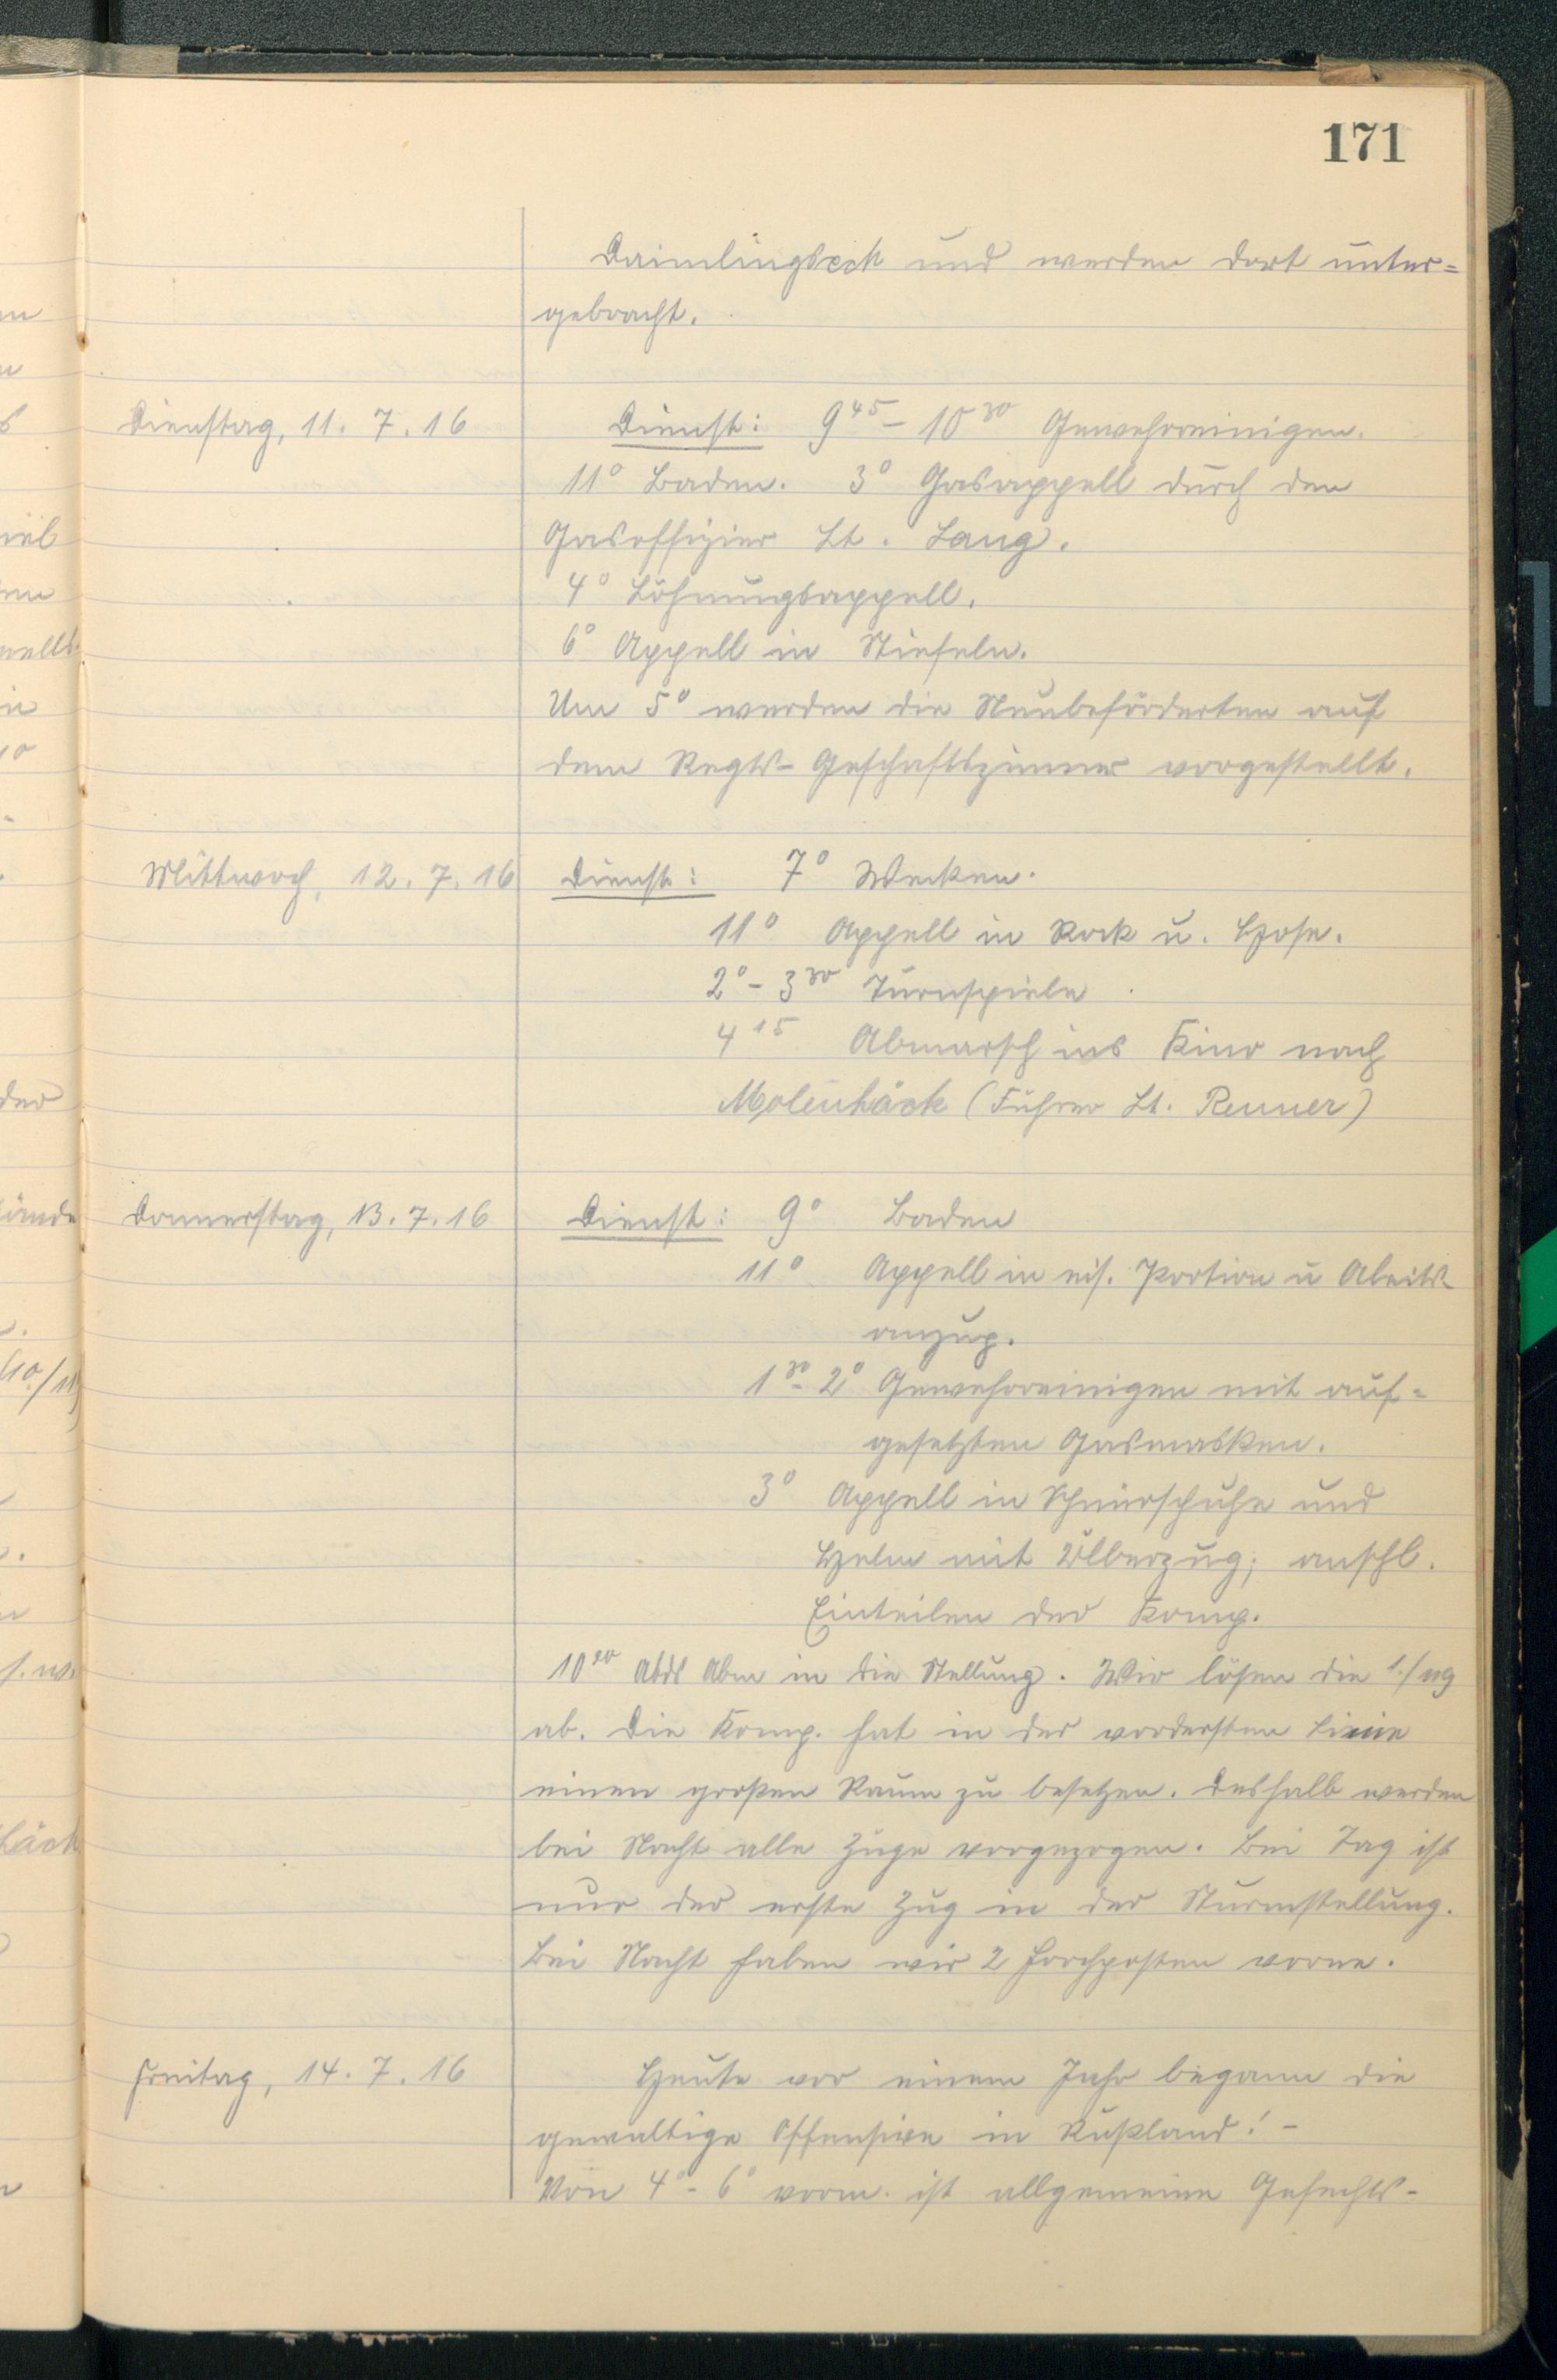 171
Daimlingseck und werden dort unter=
gebracht.
Dienstag, 11. 7. 16 Dienst: 9⁴⁵ – 10³⁰ Gewehrreinigen.
11⁰ Baden. 3⁰ Gasappell durch den
Gasoffizier Lt. Lang.
4⁰ Löhnungsappell.
6⁰ Appell in Stiefeln.
Um 5⁰ werden die Neubeförderten auf
dem Regts- Geschäftszimmer vorgestellt.
Mittwoch, 12. 7. 16 Dienst: 7⁰ Wecken.
11⁰ Appell in Rock u. Hose.
2⁰ – 3³⁰ Turnspiele
4¹⁵ Abmarsch ins Kino nach
Molenhäck (Führer Lt. Renner)
Donnerstag, 13. 7. 16 Dienst: 9⁰ Baden
11⁰ Appell in eis. Portion u Abeits
anzug.
1³⁰ - 2⁰ Gewehrreinigen mit auf=
gesetzten Gasmasken.
3⁰ Appell in Schnürschuhe und
Helm mit Überzug; anschl.
Einteilen der Komp.
Abds Abm in die Stellung. Wir lösen die 1./119
ab. Die Komp. hat in der vordersten Linie
einen großen Raum zu besetzen. Deshalb werden
bei Nacht alle Züge vorgezogen. Bei Tag ist
nur der erste Zug in der Sturmstellung.
Bei Nacht haben wir 2 Horchposten vorne.
Freitag, 14. 7. 16 Heute vor einem Jahr begann die
gewaltige Offensive in Rußland! –
Von 4⁰ - 6⁰ vorm. ist allgemeine Gefechts-